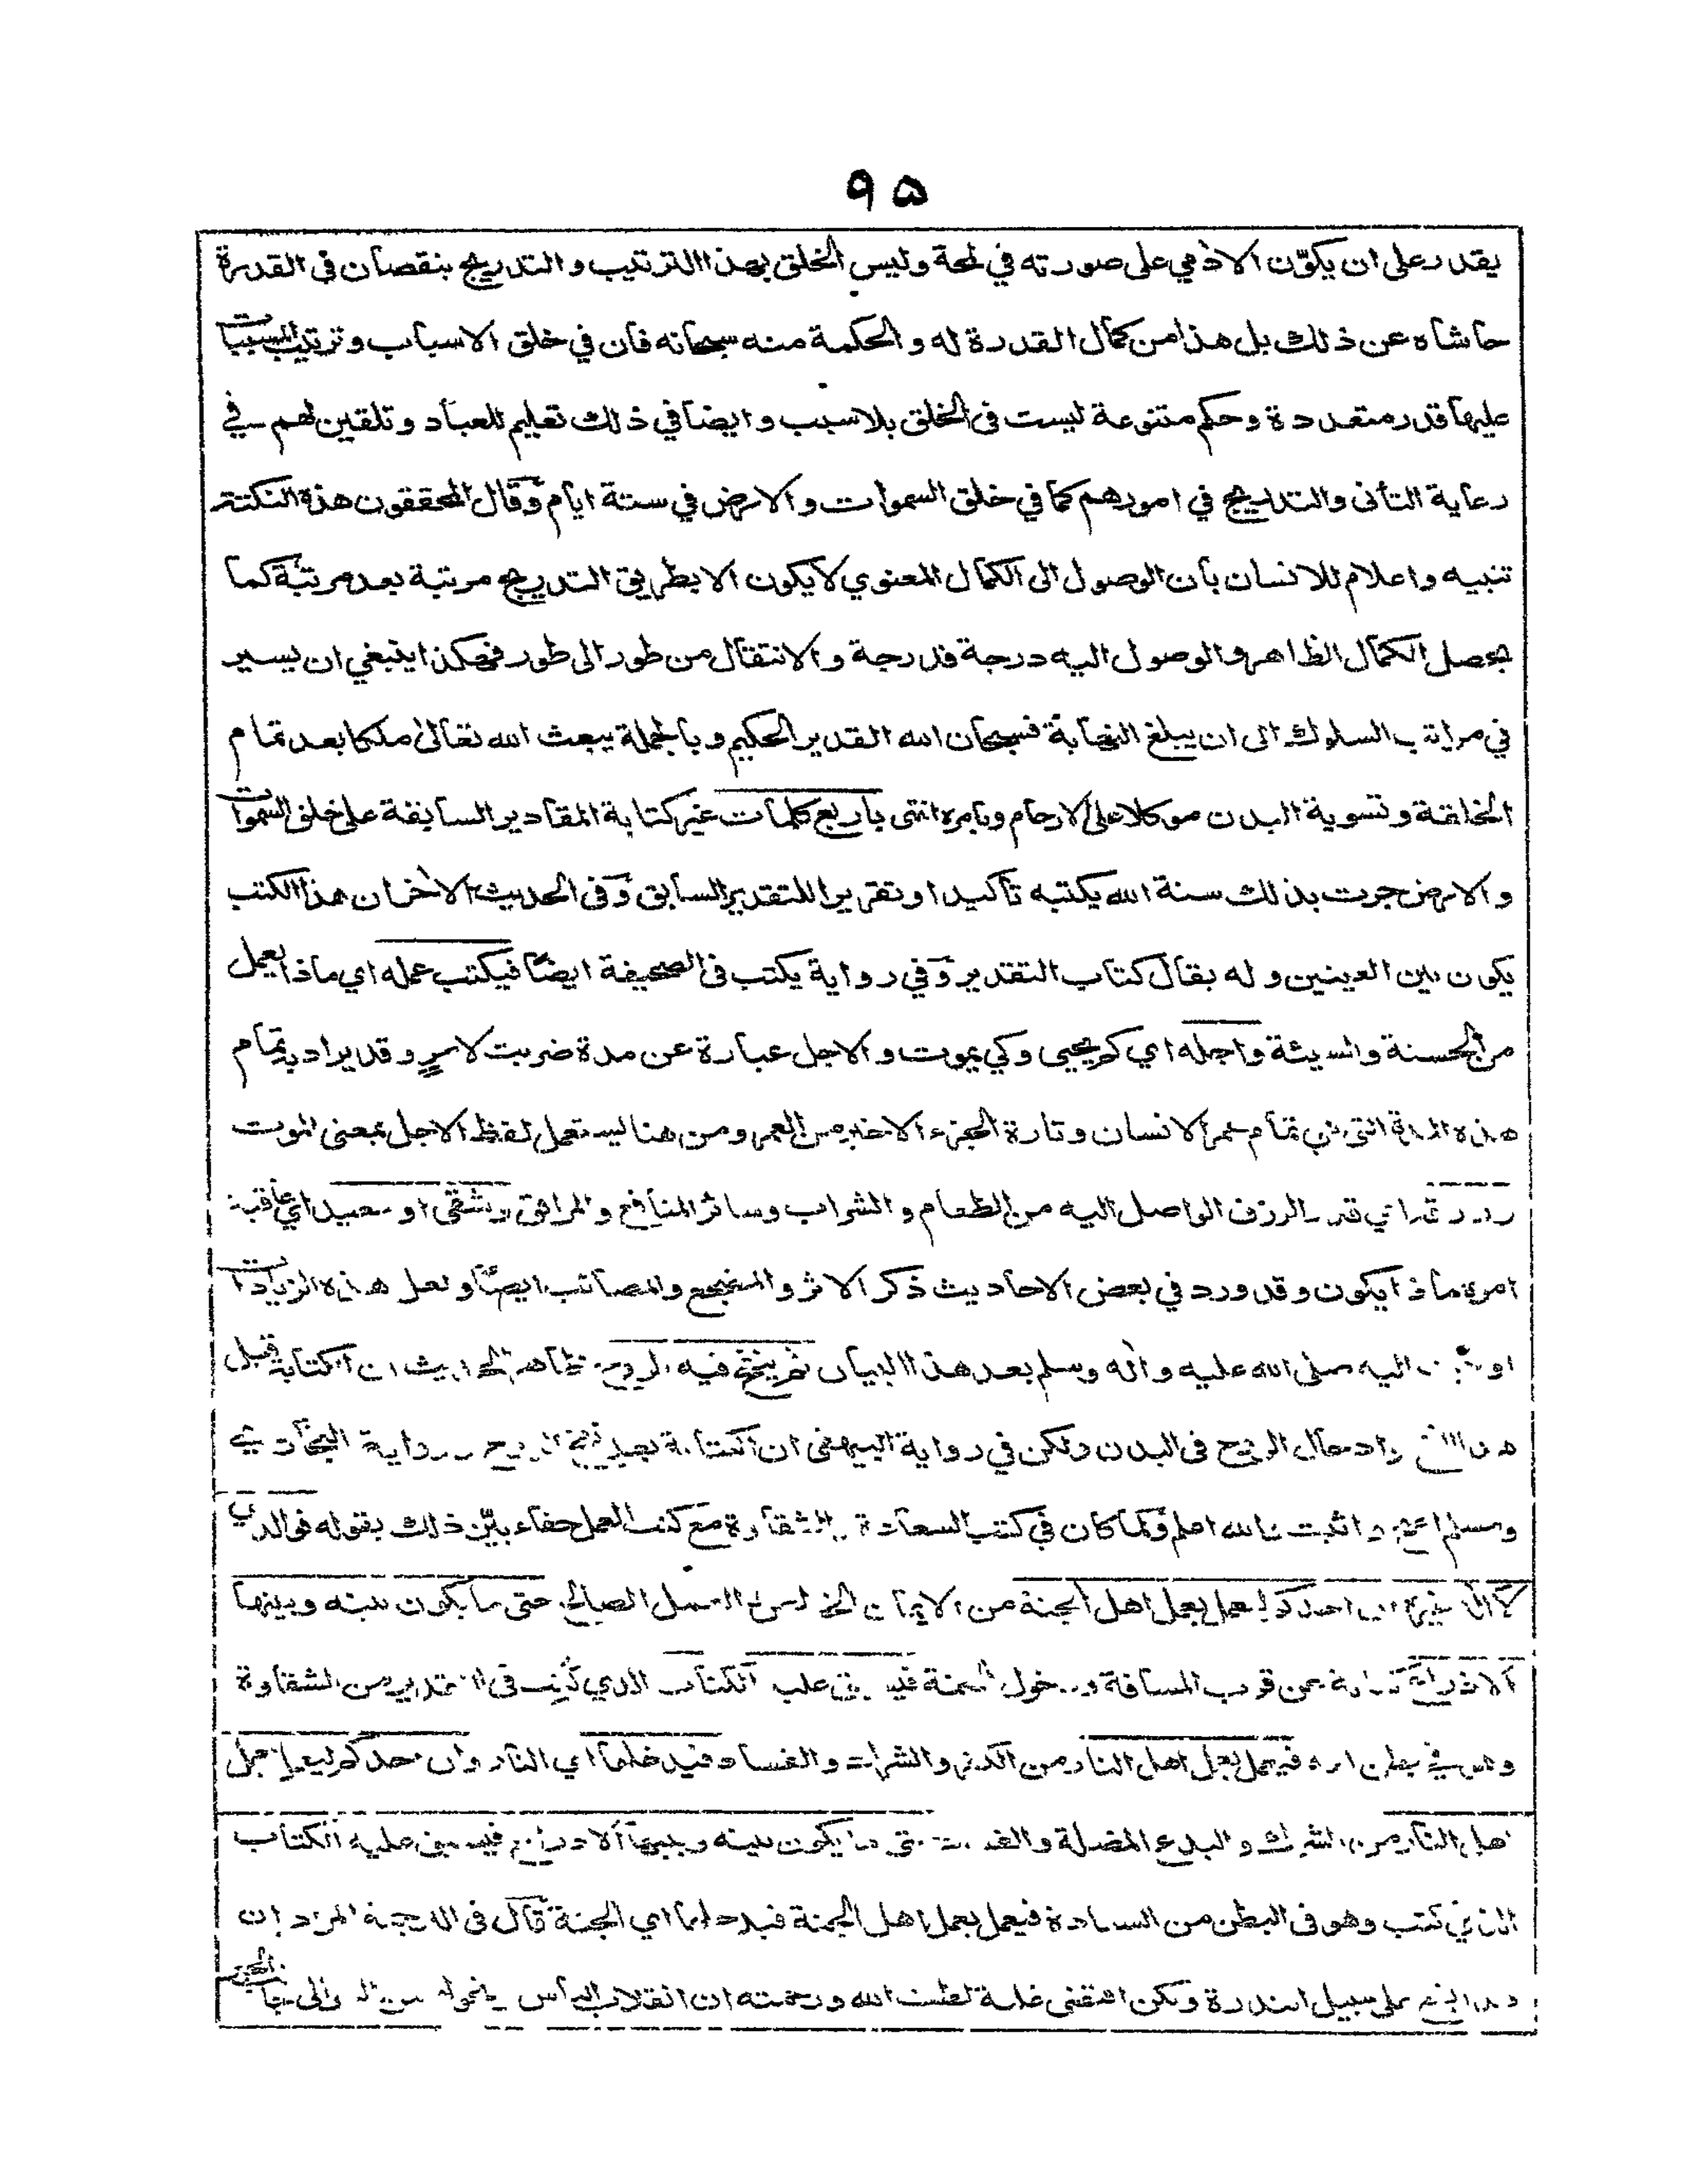 ٩٥
يقدر على ان يكوّن الادمي على صورته في لمحة وليس الخلق بهذا الترتيب والتدريج بنقصان في القدرة
حاشاه عن ذلك بل هذا من كمال القدرة له والحكمة منه سبحانه فان في خلق الاسباب وترتيب المسببات
عليها قدر متعددة وحكم متنوعة ليست في الخلق بلا سبب وايضا في ذلك تعليم للعباد وتلقين لهم في
رعاية التأنى والتدريج في امورهم كما في خلق السموات والارض في ستة ايام وقال المحققون هذه النكتة
تنبيه واعلام للانسان بان الوصول الى الكمال المعنوي لا يكون الا بطريق التدريج مرتبة بعد مرتبة كما
يحصل الكمال الظاهر والوصول اليه درجة فدرجة والانتقال من طور الى طور فهكذا ينبغي ان يسير
في مراتب السلوك الى ان يبلغ النهاية فسبحان الله القدير الحكيم وبالجملة يبعث الله تعالى ملكا بعد تمام
الخلقة وتسوية البدن موكلا على الارحام ويامره انتهى باربع كلمات غير كتابة المقادير السابقة على خلق السموات
والارض جرت بذلك سنة الله يكتبه تاكيدا وتقريرا للتقدير السابق وفي الحديث الاخر ان هذا الكتب
يكون بين العينين وله يقال كتاب التقدير وفي رواية يكتب في الصحيفة ايضا فيكتب عمله اي ماذا يعمل
من الحسنة والسيئة واجله اي كم يحيى وكي يموت والاجل عبارة عن مدة ضربت لامر وقد يراد به تمام
هذه المدة التي هي تمام عمر الانسان وتارة الجزء الاخير من العمر ومن هنا يستعمل لفظ الاجل بمعنى الموت
الرزق الواصل اليه من الطعام والشراب وسائر المنافع والمرافق وشقي او سعيد اي عاقبة
امره ماذا يكون وقد ورد في بعض الاحاديث ذكر الاثر والمضجع والمصائب ايضا ولعل هذه الزيادات
اليه صلى الله عليه واله وسلم بعد هذا البيان ثم ينفخ فيه الروح ظاهر الحديث ان الكتابة قبل
الروح في البدن ولكن في رواية البيهقي ان الكتابة بعد نفخ الروح رواية البخاري
ومسلم اصح واثبت والله اعلم ولما كان في كتب السعادة والشقاوة مع كتب العمل خفاء بيّن ذلك بقوله فوالذي
لا اله غيره ان احدكم ليعمل بعمل اهل الجنة من الايمان العمل الصالح حتى ما يكون بينه وبينها
الا ذراع عن قرب المسافة ودخول الجنة فيسبق عليه الكتاب الذي كتب في التقدير من الشقاوة
وهو في بطن امه فيعمل بعمل اهل النار من الكفر والشرك والفساد فيدخلها اي النار وان احدكم ليعمل بعمل
اهل النار من الشرك والبدع المضلة حتى ما يكون بينه وبينها الا ذراع فيسبق عليه الكتاب
الذي كتب وهو في البطن من السعادة فيعمل بعمل اهل الجنة فيدخلها اي الجنة قال في المراد ان
على سبيل الندرة ولكن اقتضى غلبة لطف الله ورحمته ان انقلاب الناس